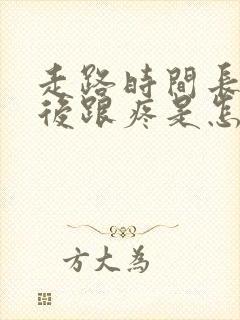 走路時間長
後跟疼是怎
方大為